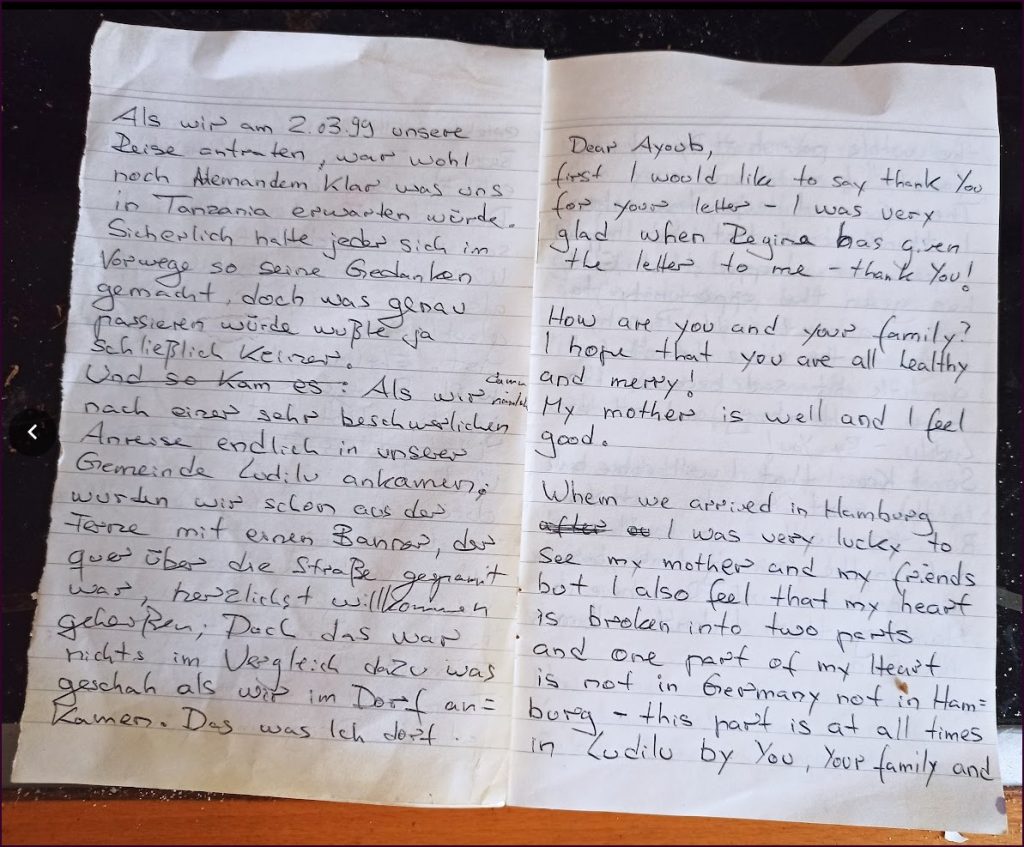 Als wir am 2.03.99 unsere
Reise antraten, war wohl
noch Niemandem Klar was uns
in Tanzania erwarten würde.
Sicherlich hatte jeder sich im
Vorwege so seine Gedanken
gemacht, doch was genau
passieren würde wußte ja
schließlich Keiner!
Und so Kam es: Als wir dann nämlich
nach einer sehr beschwerlichen
Anreise endlich in unserer
Gemeinde Ludilu ankamen,
wurden wir schon aus der
Ferne mit einen Banner, der
quer über die Straße gespannt
war, herzlichst willkommen
geheißen; Doch das war
nichts im Vergleich dazu was
geschah als wir im Dorf an=
kamen. Das was Ich dort
Dear Ayoub,
first I would like to say thank You
for your letter - I was very
glad when Regina has given
the letter to me - thank You!
How are you and your family?
I hope that you are all healthy
and merry!
My mother is well and I feel
good.
Whem we arrived in Hamburg
after I was very lucky to
see my mother and my friends
but I also feel that my heart
is broken into two parts
and one part of my Heart
is not in Germany not in Ham=
burg - this part is at all times
in Ludilu by You, Your family and